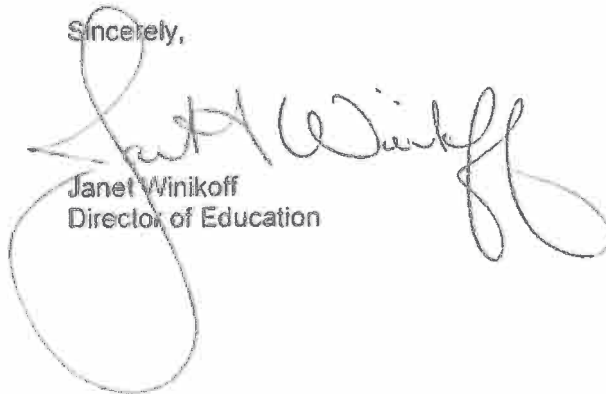 Sincerely,
Janet Winikoff
Janet Winikoff
Director of Education